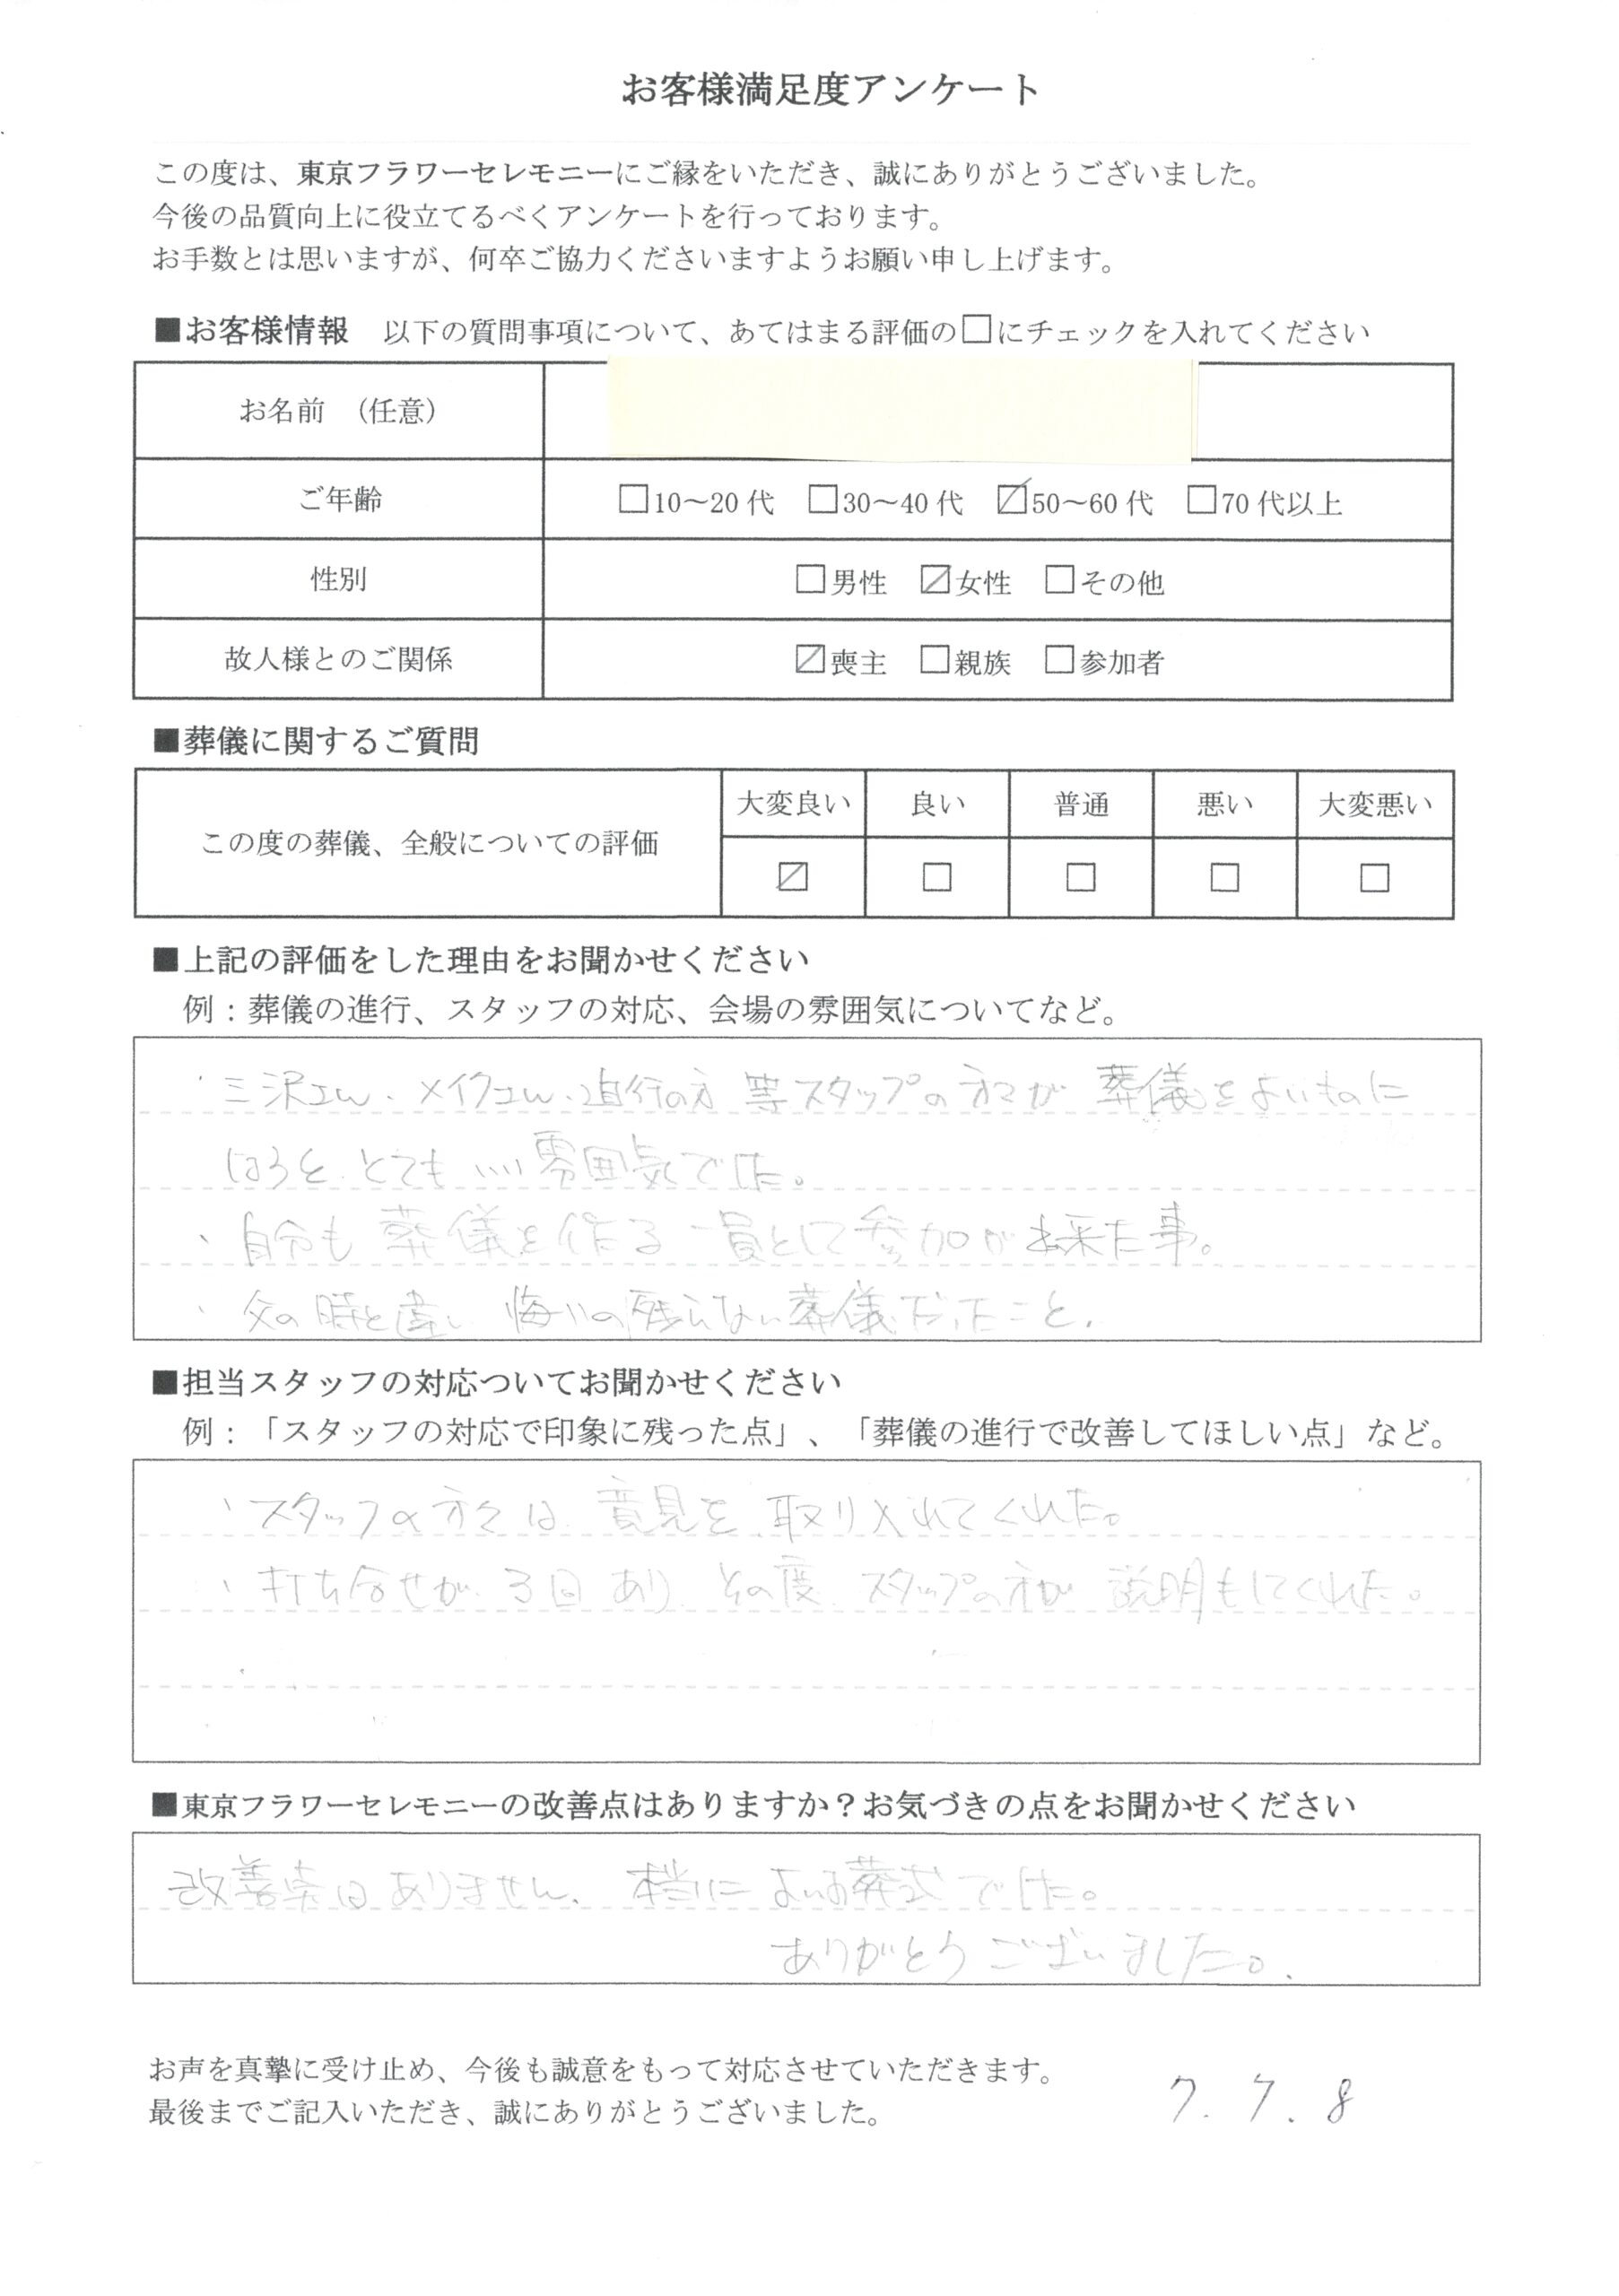 お客様満足度アンケート
この度は、東京フラワーセレモニーにご縁をいただき、誠にありがとうございました。
今後の品質向上に役立てるべくアンケートを行っております。
お手数とは思いますが、何卒ご協力くださいますようお願い申し上げます。
■お客様情報　以下の質問事項について、あてはまる評価の□にチェックを入れてください
お名前　（任意）
ご年齢　□10～20代　□30～40代　☑50～60代　□70代以上
性別　□男性　☑女性　□その他
故人様とのご関係　☑喪主　□親族　□参加者
■葬儀に関するご質問
大変良い　良い　普通　悪い　大変悪い
この度の葬儀、全般についての評価　☑　□　□　□　□
■上記の評価をした理由をお聞かせください
例：葬儀の進行、スタッフの対応、会場の雰囲気についてなど。
・三沢さん、メイクさん、進行の方 等スタップの方々が 葬儀をよいものに
しようと、とても いい雰囲気でした。
、自分も 葬儀を作る 一員として参加が出来た事。
、父の時と違い 悔いの残らない葬儀だったこと。
■担当スタッフの対応ついてお聞かせください
例：「スタッフの対応で印象に残った点」、「葬儀の進行で改善してほしい点」など。
、スタッフの方々は 意見を 取り入れてくれた。
、打ち合せが 3回 あり、その度 スタップの方が 説明もしてくれた。
■東京フラワーセレモニーの改善点はありますか？お気づきの点をお聞かせください
改善点はありません、本当に よいお葬式でした。
ありがとうございました。
お声を真摯に受け止め、今後も誠意をもって対応させていただきます。
最後までご記入いただき、誠にありがとうございました。
7. 7. 8